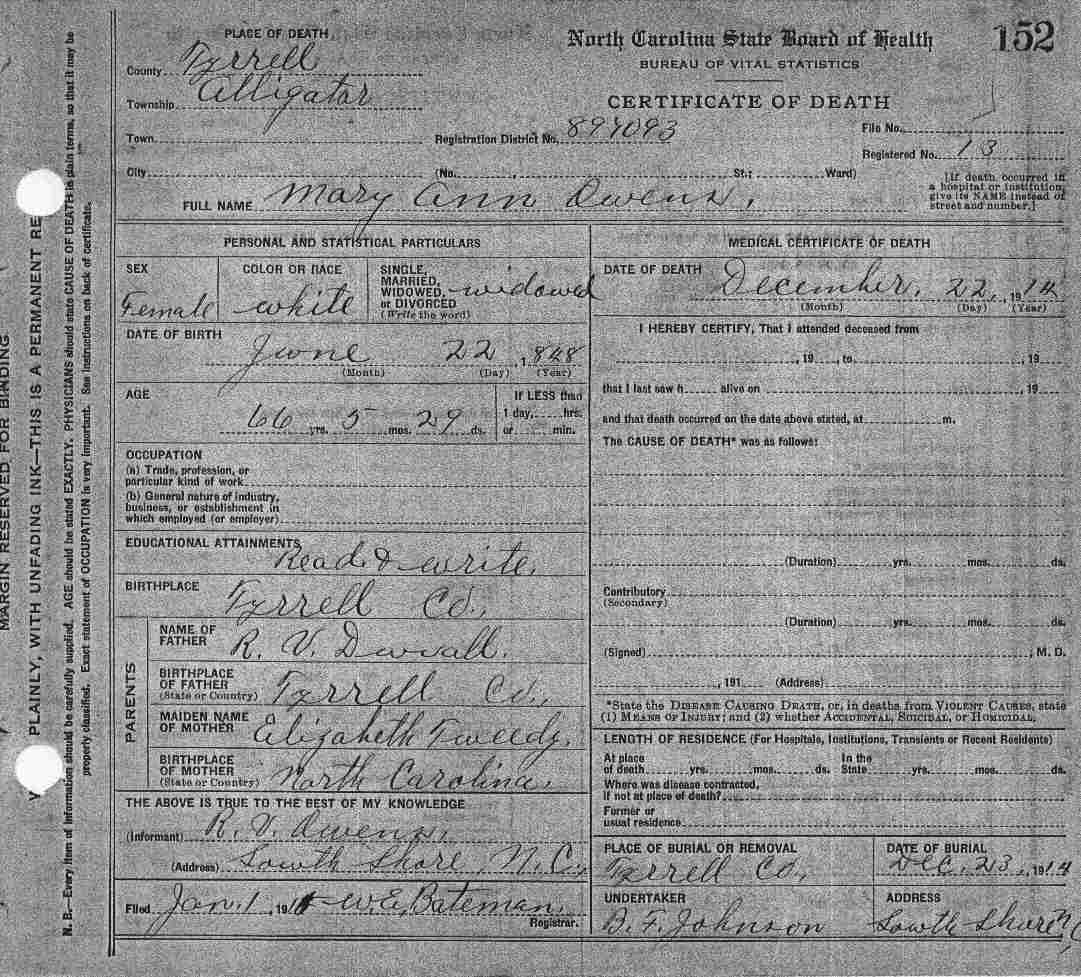 North Carolina State Board of Health
152
BUREAU OF VITAL STATISTICS
CERTIFICATE OF DEATH
PLACE OF DEATH
County Tyrrell
Township Alligator
Town Registration District No. 897093 File No.
Registered No. 13
City (No. , St.; Ward)
[If death occurred in
a hospital or institution,
give its NAME instead of
street and number.]
FULL NAME Mary Ann Owens.
PERSONAL AND STATISTICAL PARTICULARS
SEX
Female
COLOR OR RACE
white
SINGLE,
MARRIED,
WIDOWED,
or DIVORCED
(Write the word)
widowed
DATE OF BIRTH
June 22, 1848
(Month) (Day) (Year)
AGE
66 yrs. 5 mos. 29 ds.
If LESS than
1 day, hrs.
or min.
OCCUPATION
(a) Trade, profession, or
particular kind of work
(b) General nature of industry,
business, or establishment in
which employed (or employer)
EDUCATIONAL ATTAINMENTS
Read & write.
BIRTHPLACE
Tyrrell Co.,
PARENTS
NAME OF
FATHER
R. V. Duvall.
BIRTHPLACE
OF FATHER
(State or Country)
Tyrrell Co.,
MAIDEN NAME
OF MOTHER
Elizabeth Tweedy.
BIRTHPLACE
OF MOTHER
(State or Country)
North Carolina.
THE ABOVE IS TRUE TO THE BEST OF MY KNOWLEDGE
(Informant) R. V. Owens.
(Address) Sowth Shore, N. C.,
Filed Jan. 1, 191 W. E. Bateman.
Registrar.
MEDICAL CERTIFICATE OF DEATH
DATE OF DEATH
December, 22, 1914
(Month) (Day) (Year)
I HEREBY CERTIFY, That I attended deceased from
, 19 , to , 19
that I last saw h alive on , 19
and that death occurred on the date above stated, at m.
The CAUSE OF DEATH* was as follows:
(Duration) yrs. mos. ds.
Contributory
(Secondary)
(Duration) yrs. mos. ds.
(Signed) , M. D.
, 191 (Address)
*State the DISEASE CAUSING DEATH, or, in deaths from VIOLENT CAUSES, state
(1) MEANS OF INJURY; and (2) whether ACCIDENTAL, SUICIDAL, or HOMICIDAL.
LENGTH OF RESIDENCE (For Hospitals, Institutions, Transients or Recent Residents)
At place
of death yrs. mos. ds.
In the
State yrs. mos. ds.
Where was disease contracted,
if not at place of death?
Former or
usual residence
PLACE OF BURIAL OR REMOVAL
Tyrrell Co.,
DATE OF BURIAL
Dec. 23, 1914
UNDERTAKER
B. F. Johnson
ADDRESS
Sowth Shore N C
MARGIN RESERVED FOR BINDING
PLAINLY, WITH UNFADING INK—THIS IS A PERMANENT RE
N. B.—Every item of information should be carefully supplied. AGE should be stated EXACTLY. PHYSICIANS should state CAUSE OF DEATH in plain terms, so that it may be
properly classified. Exact statement of OCCUPATION is very important. See instructions on back of certificate.